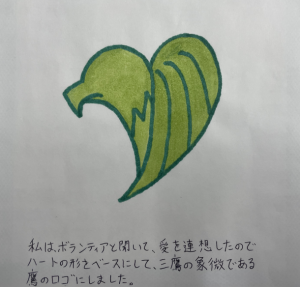 私は、ボランティアと聞いて、愛を連想したので
ハートの形をベースにして、三鷹の象徴である
鷹のロゴにしました。